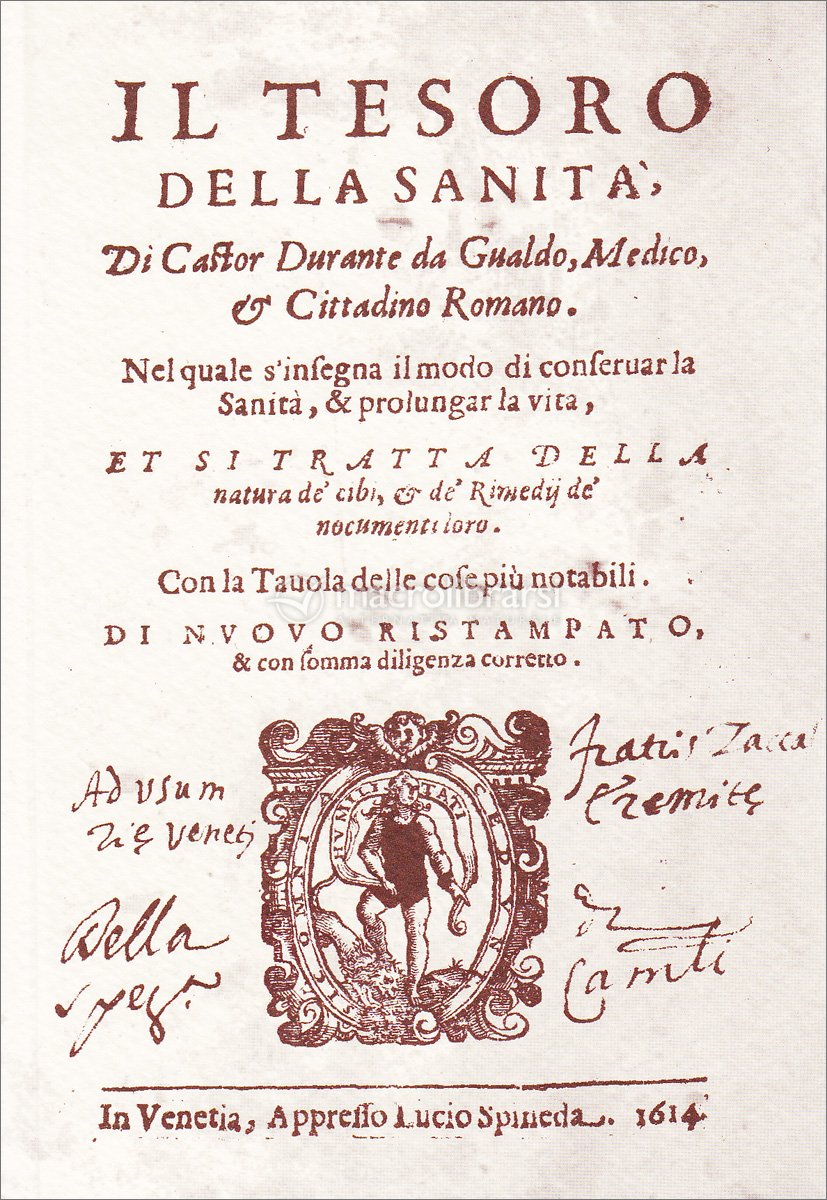 IL TESORO
DELLA SANITA',
Di Caſtor Durante da Gualdo, Medico,
& Cittadino Romano.
Nel quale s'inſegna il modo di conſeruar la
Sanità, & prolungar la vita,
ET SI TRATTA DELLA
natura de' cibi, & de' Rimedij de'
nocumenti loro.
Con la Tauola delle coſe più notabili.
macrolibrarsi
DI NVOVO RISTAMPATO,
& con ſomma diligenza corretto.
Ad vsum
fratris Zacca
Veneti
Eremitę
HVMILITATI
OMNIA CEDVNT
Della
In Venetia, Appreſſo Lucio Spineda. 1614